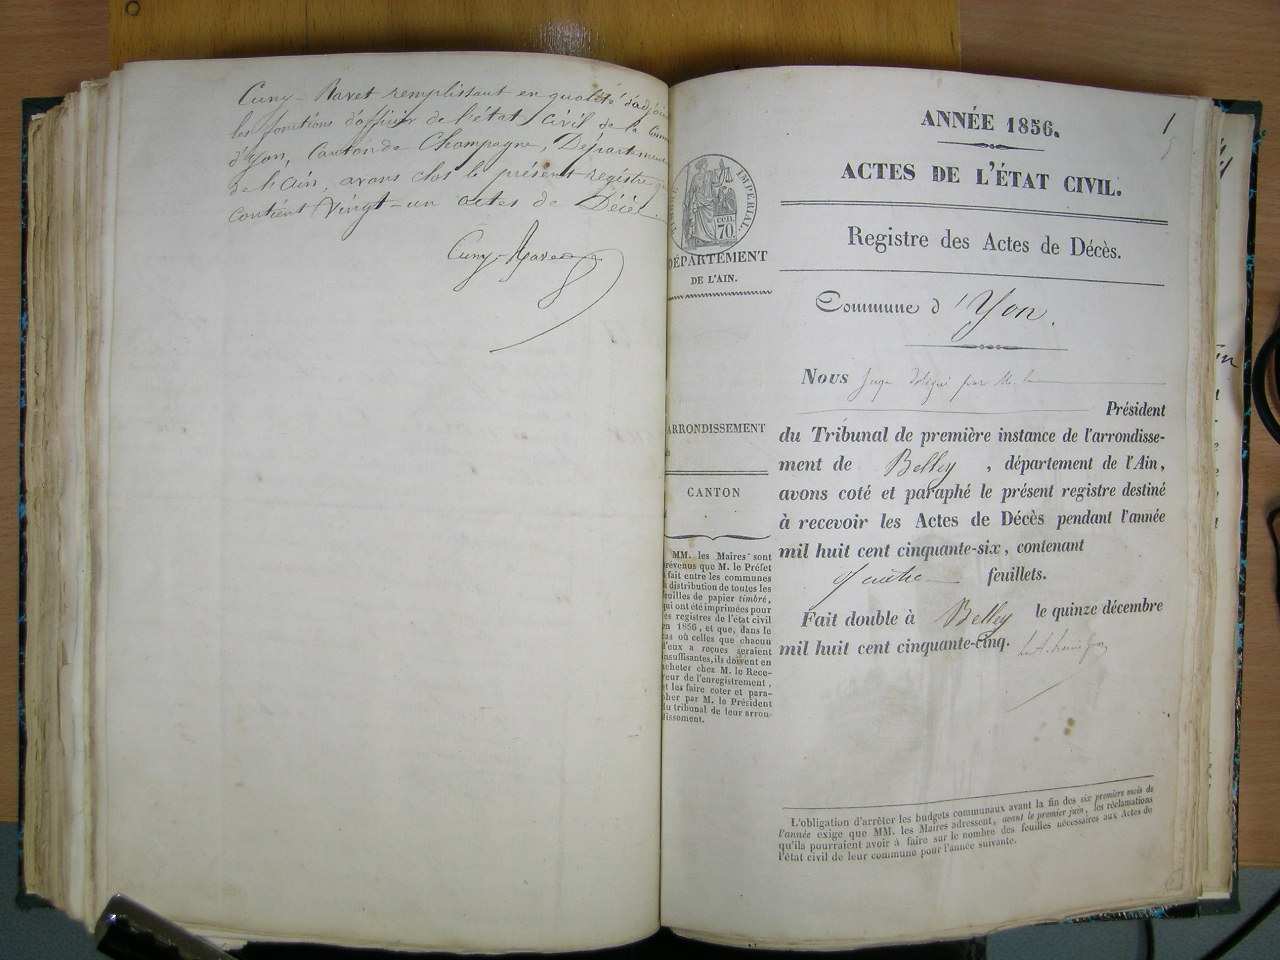 Cuny-Ravet remplissant en qualité d'adjoin
les fonctions d'officier de l'état civil de la Commune
d'Yon, Canton de Champagne, Département
de l'Ain, avons clos le présent registre
contient Vingt-un actes de Décès
Cuny-Ravet
1
ANNÉE 1856.
ACTES DE L'ÉTAT CIVIL.
Registre des Actes de Décès.
IMPÉRIAL.
cen.
70
DÉPARTEMENT
DE L'AIN.
Commune d'Yon.
Nous Juge délégué par M. le
Président
du Tribunal de première instance de l'arrondisse-
ment de Belley, département de l'Ain,
avons coté et paraphé le présent registre destiné
à recevoir les Actes de Décès pendant l'année
mil huit cent cinquante-six, contenant
quatre feuillets.
Fait double à Belley le quinze décembre
mil huit cent cinquante-cinq.
ARRONDISSEMENT
CANTON
MM. les Maires sont
révenus que M. le Préfet
fait entre les communes
distribution de toutes les
euilles de papier timbré,
ui ont été imprimées pour
es registres de l'état civil
en 1856, et que, dans le
as où celles que chacun
d'eux a reçues seraient
nsuffisantes, ils doivent en
cheter chez M. le Rece-
eur de l'enregistrement,
et les faire coter et para-
pher par M. le Président
du tribunal de leur arron-
dissement.
L'obligation d'arrêter les budgets communaux avant la fin des six premiers mois de
l'année exige que MM. les Maires adressent, avant le premier juin, les réclamations
qu'ils pourraient avoir à faire sur le nombre des feuilles nécessaires aux Actes de
l'état civil de leur commune pour l'année suivante.